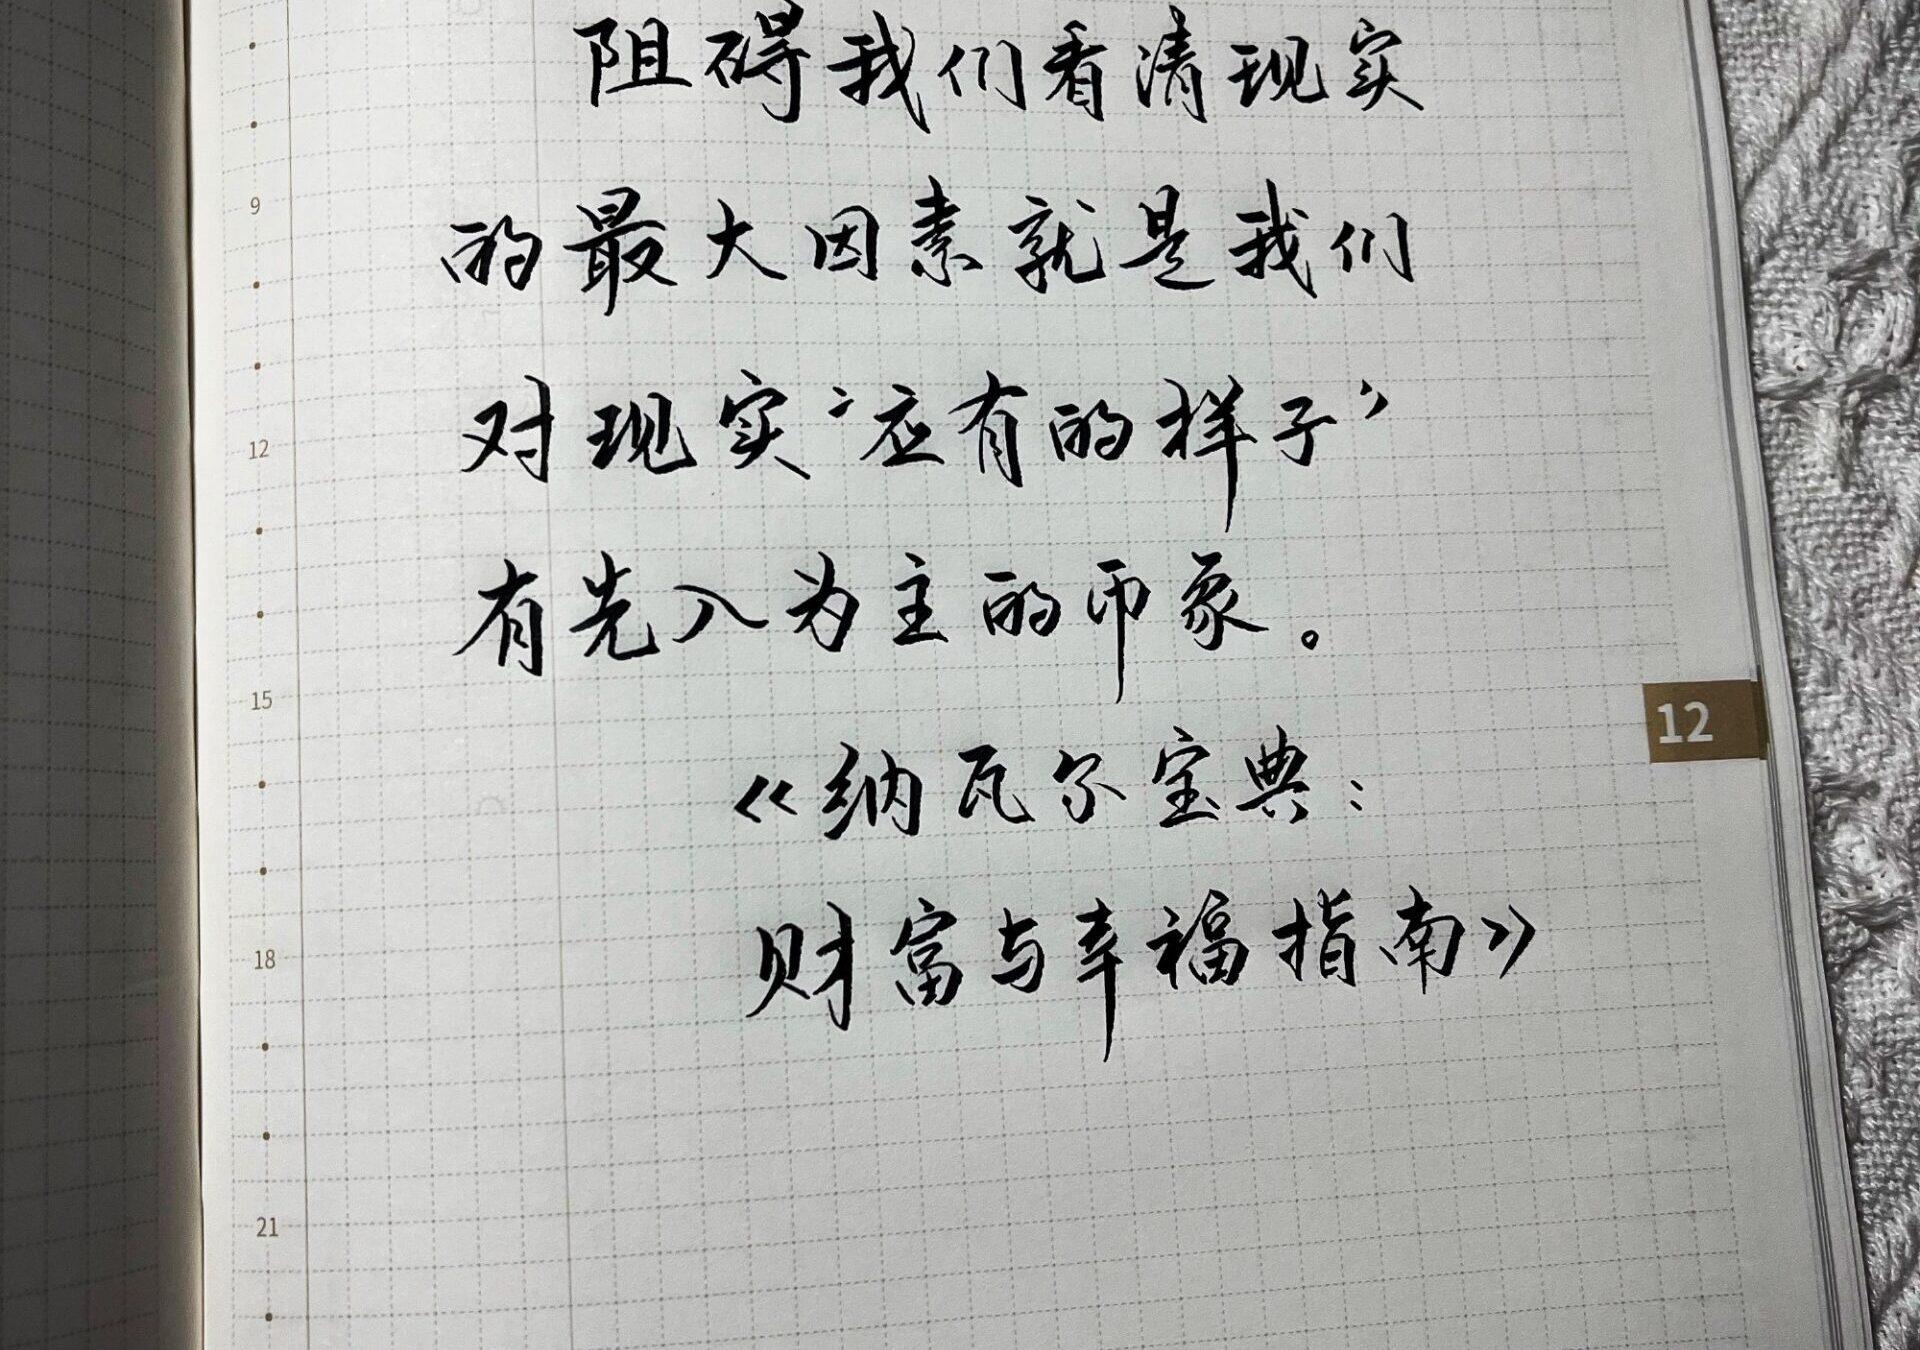 阻碍我们看清现实
9
的最大因素就是我们
12
对现实“应有的样子”
有先入为主的印象。
15
12
《纳瓦尔宝典：
财富与幸福指南》
18
21